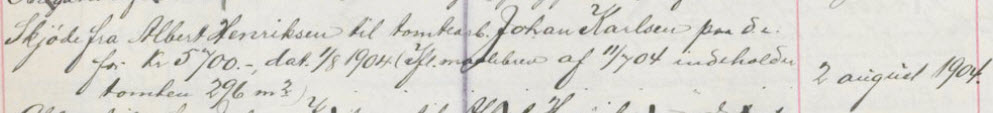 Skjøde fra Albert Henriksen til tomtearb. Johan Karlsen paa d.e.
for Kr 5700.-, dat. 1/8 1904. (Ifl. maalebrev af 11/7 04 indeholder
tomten 296 m²)
2 august 1904.